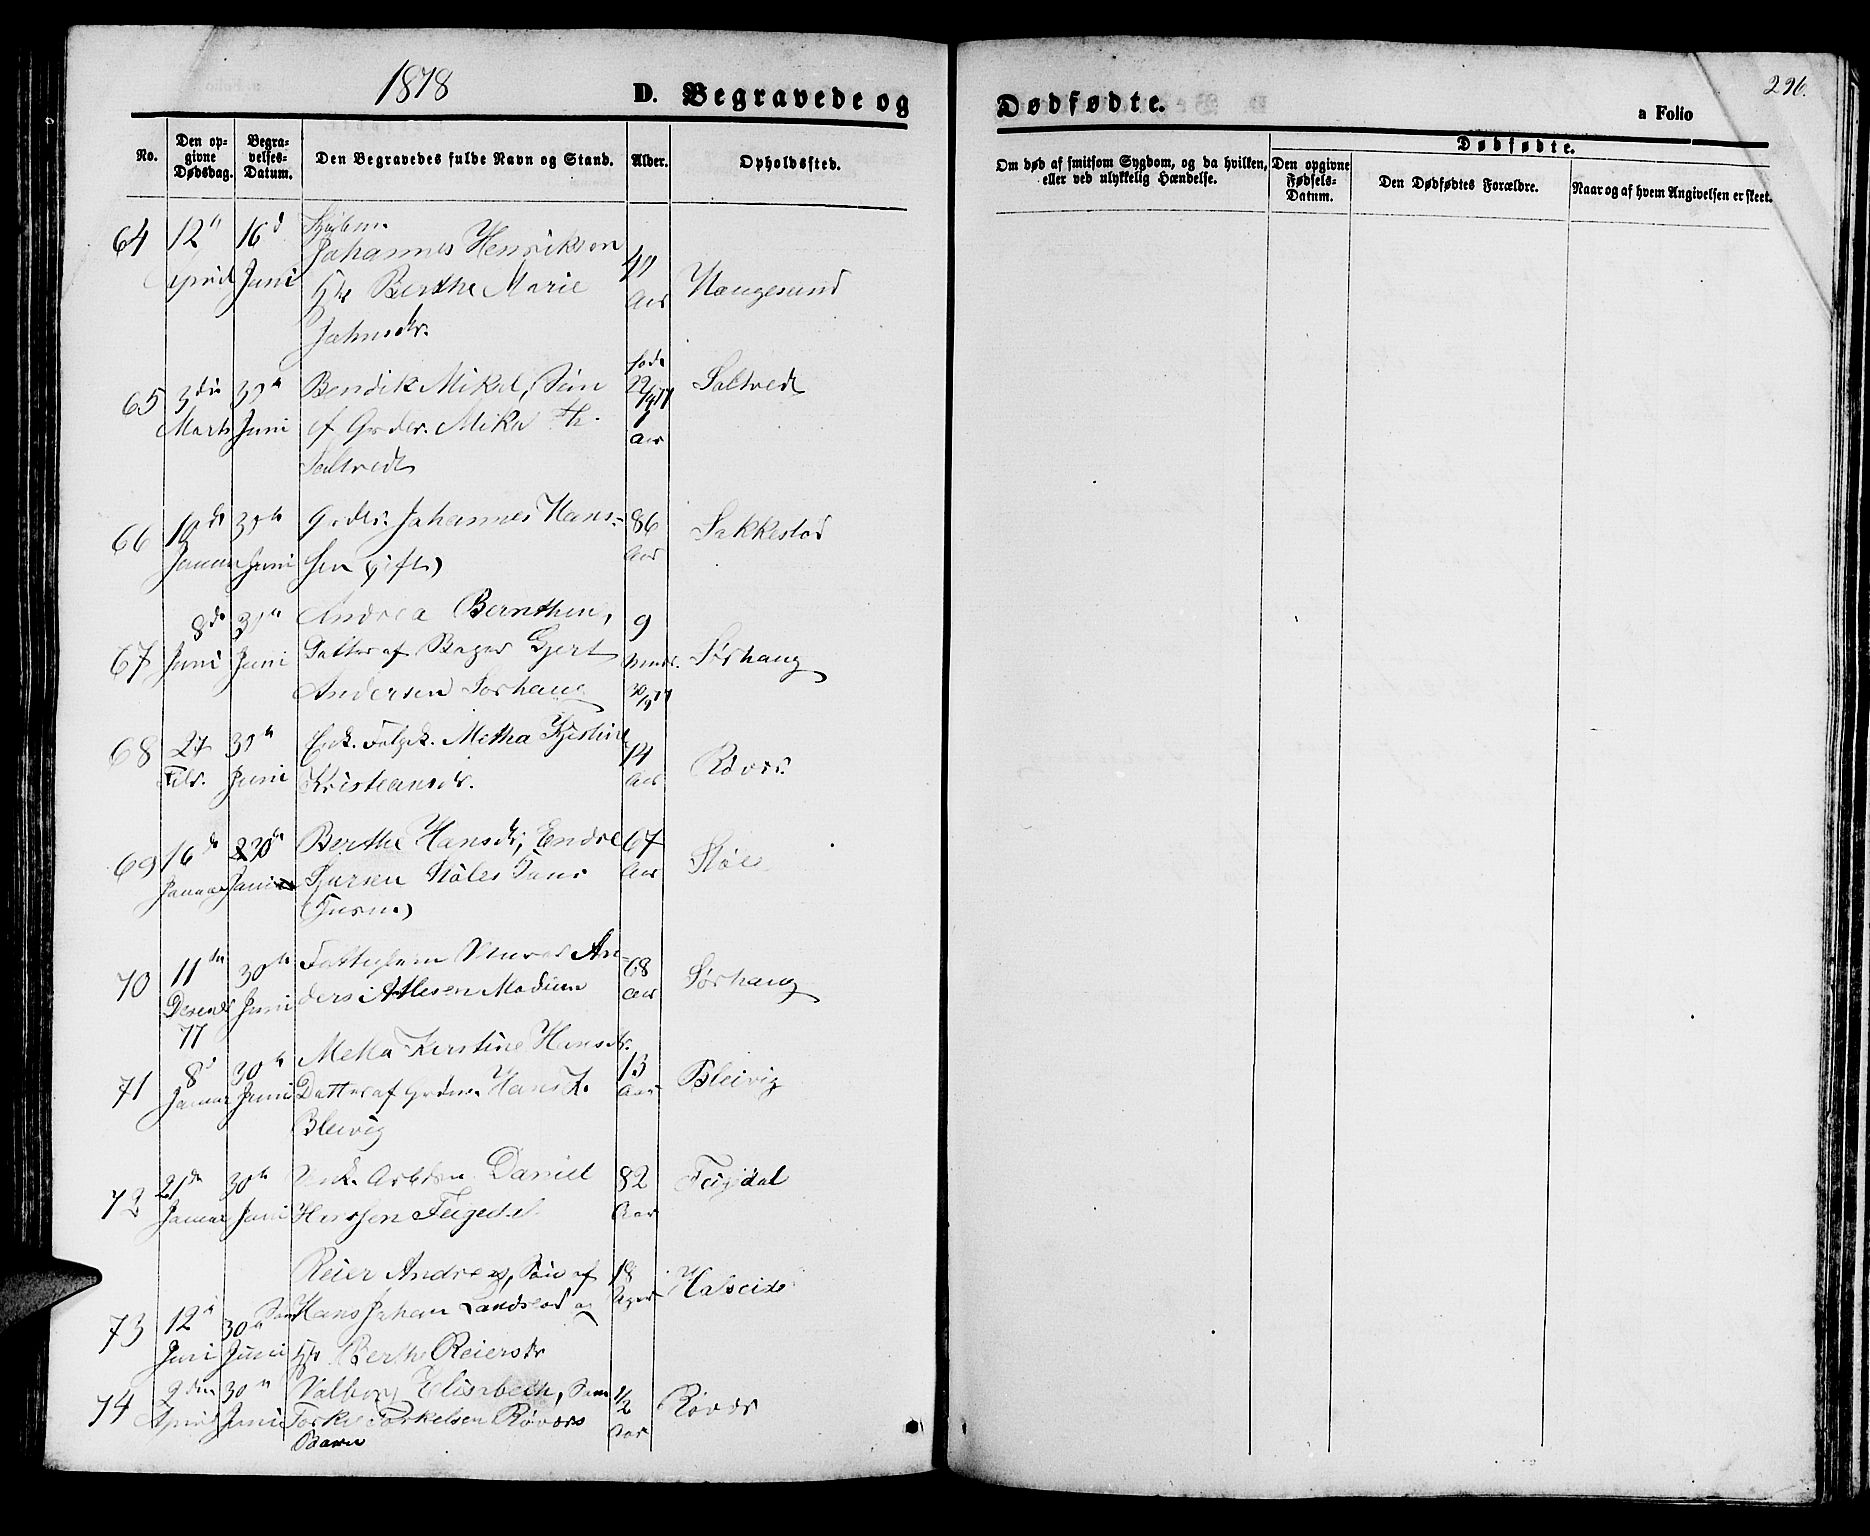 1878
D. Begravede og
No.
Den op-
givne
Dødsdag.
Begra-
velses-
Datum.
Den Begravedes fulde Navn og Stand.
Alder.
Opholdssted.
64
12
April
16
Juni
Johannes Henrikson
Berthe Marie
Johnsdr.
Aar
Haugesund
65
3die
Marts
30
Juni
Bendik Mikal, Søn
af Grdbr. Mikal Th.
Saltvedt
føde
Aar
Saltvedt
66
Januar
30te
Juni
Grdbr. Johannes Hans-
sen (gift)
86
Aar
Sakkestad
67
8de
Juni
30
Juni
Andrea Bernthen,
Datter af Bager Gjert
Andersen Sørhaug
9
30/9 77
Sørhaug
68
27
Febr.
30
Juni
Metha Kjestine
Kristiansdr.
14
Aar
Røvær
69
16de
Januar
30te
Juni
Berthe Hansdr, Endre
Sjursen Støles
67
Aar
Støle
70
11te
Decemb
77
30te
Juni
An-
ders Atlesen
68
Aar
Sørhaug
71
8de
Januar
30te
Juni
Metta Kirstine Hansdr.
Datter af Grdmd. Hans K.
Bleivig
13
Aar
Bleivig
72
21de
Januar
30te
Juni
Enk. Daniel
82
Aar
Feigdal
73
12
Juni
30
Juni
Reier Andreas, Søn af
Hans Johan Landstad og
Berthe Reiersdr
18
Halseide
74
2den
April
30
Juni
Valborg Elisabeth,
Torkel Torkelsen Røværs
Barn
1/2
Aar
Røvær
Dødfødte.
296.
a Folio
Om død af smitsom Sygdom, og da hvilken,
eller ved ulykkelig Hændelse.
Dødfødte.
Den opgivne
Fødsels-
Datum.
Den Dødfødtes Forældre.
Naar og af hvem Angivelsen er skeet.